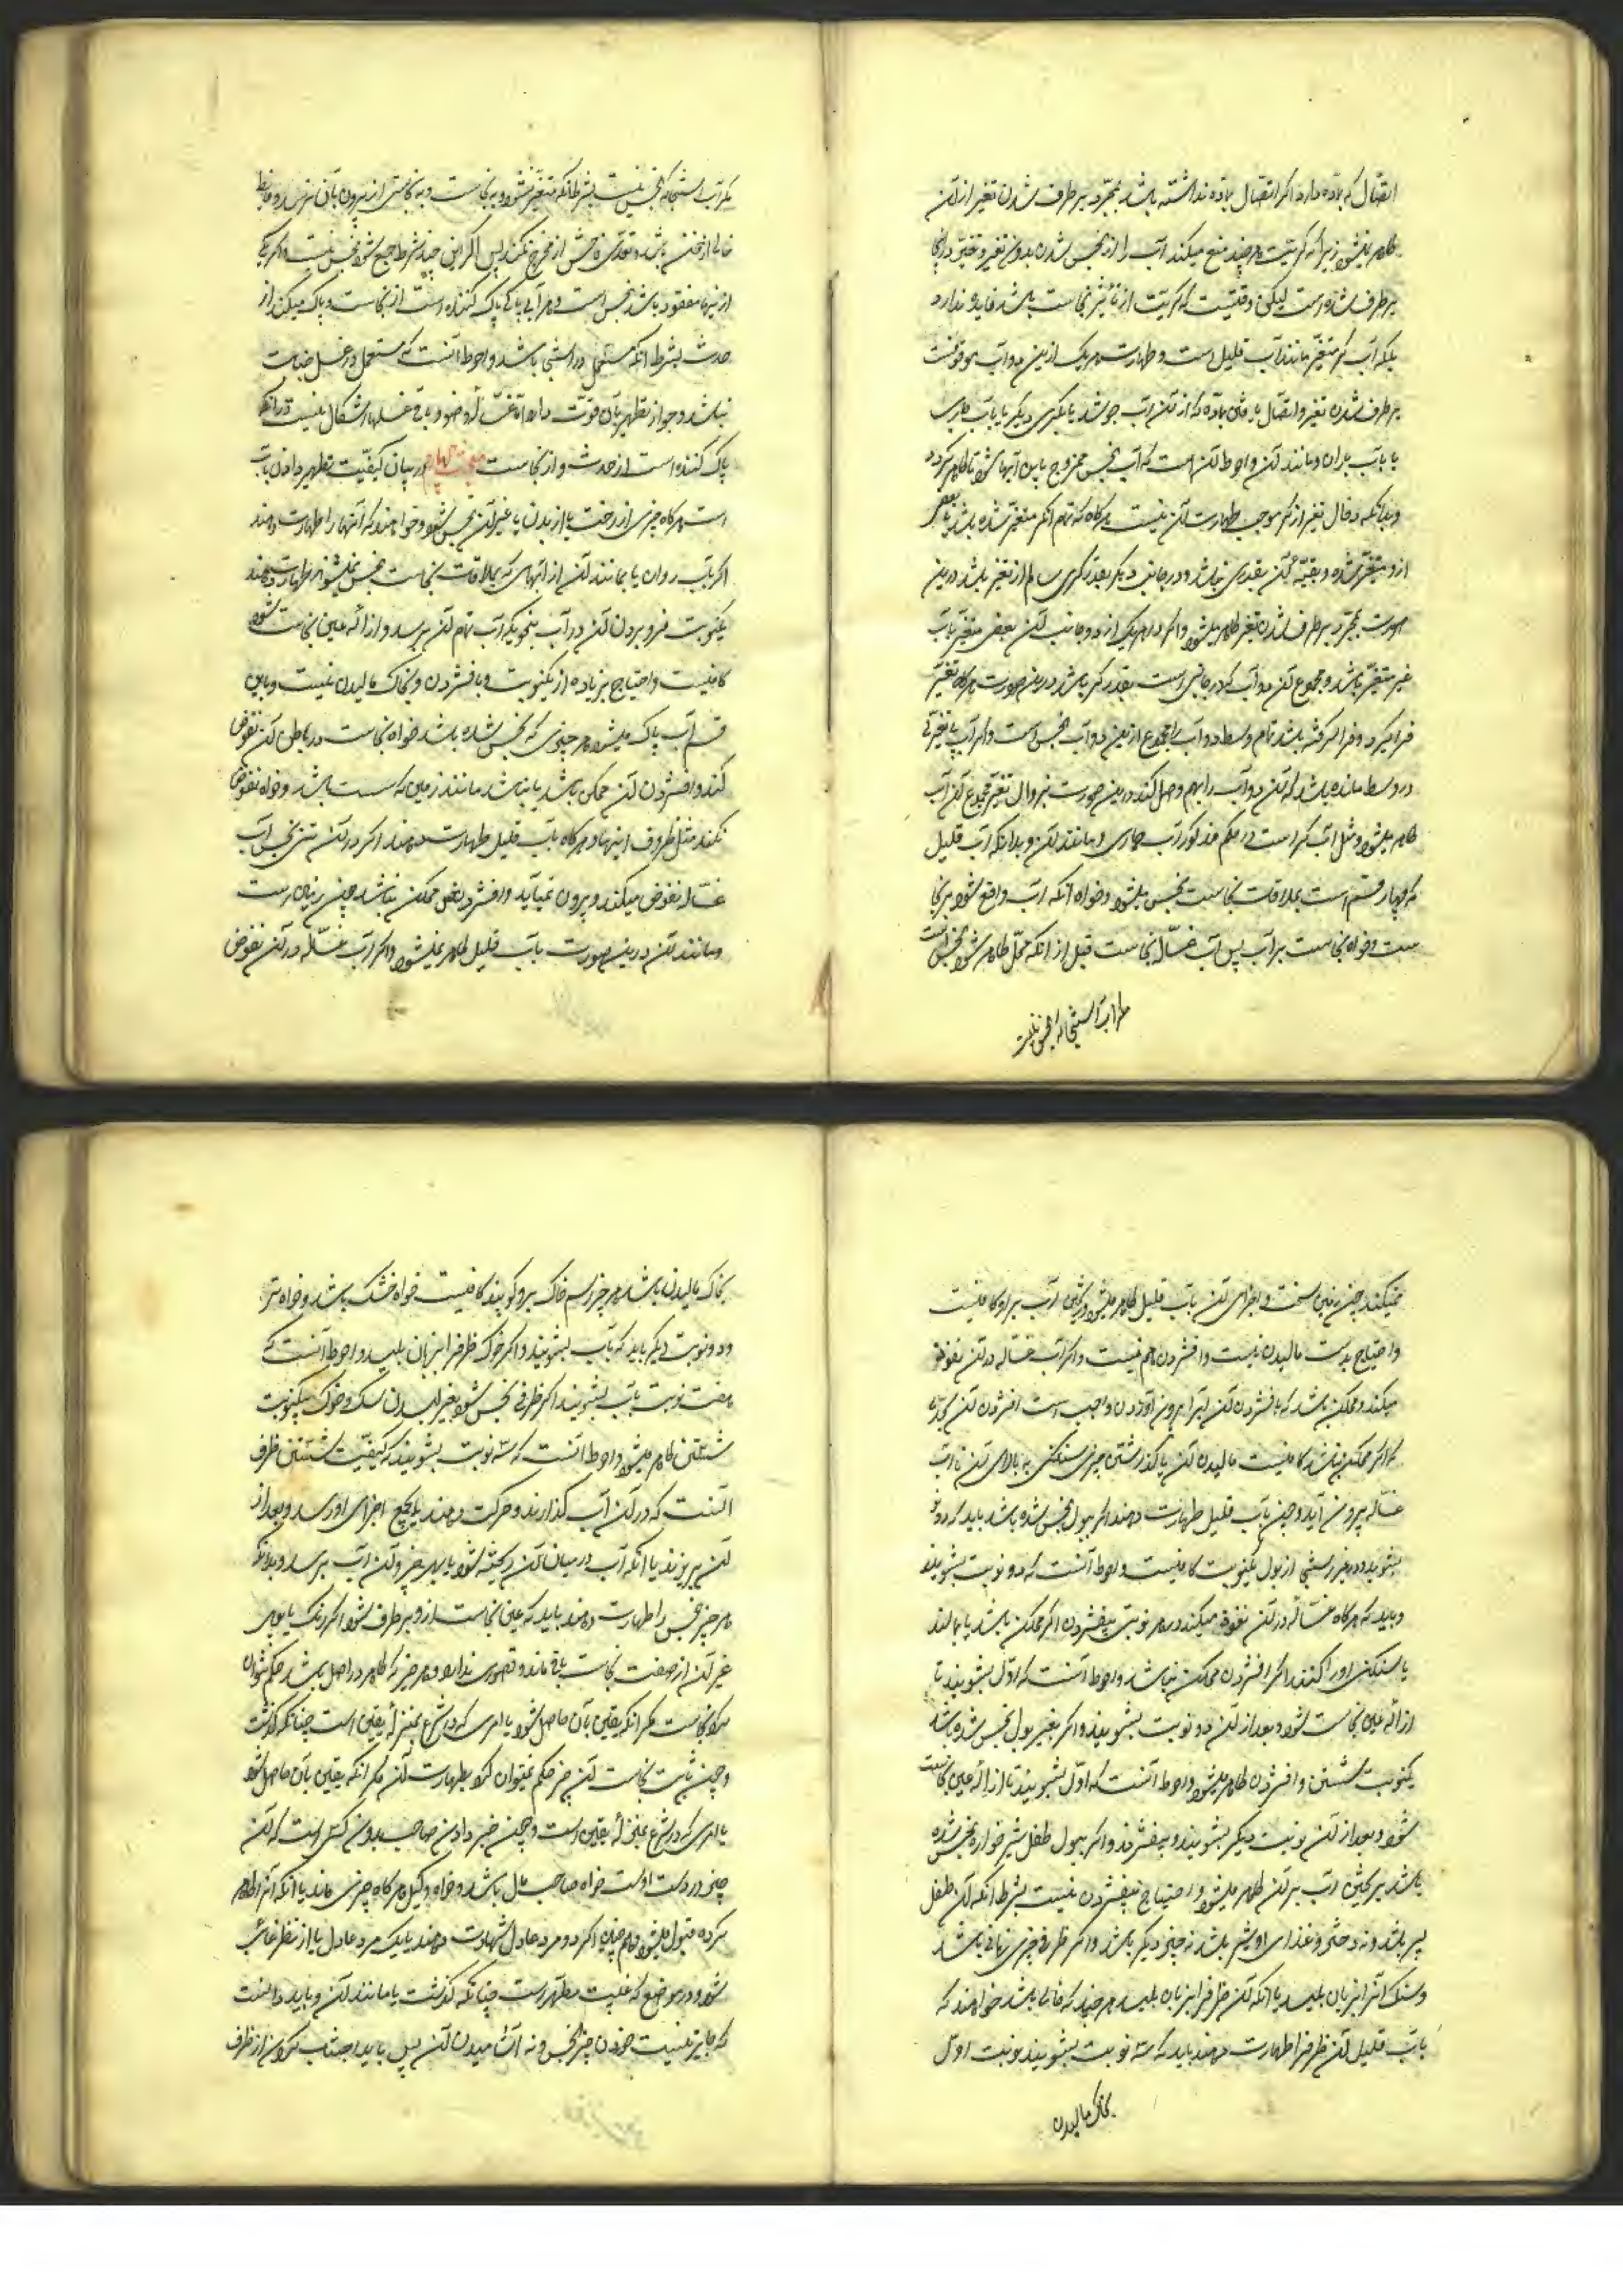 اتصال که بماده دارد اگر اتصال بماده نداشته باشد بمجرد برطرف شدن تغیر از آن
طاهر نمیشود زیرا که کریت هر چند منع میکند آب را از نجس شدن بدون تغیر و تغیر در اینجا
برطرف شده است لیکن وقتیست که کریت از تأثیر نجاست باشد فایده ندارد
بلکه آب کر متغیر مانند آب قلیل است و طهارت هر یک ازین دو آب موقوفست
برطرف شدن تغیر و اتصال یافتن بماده که از آن آب جوشد یا بکری دیگر یا بآب جاری
یا بآب باران و مانند آن و احوط آن است که آب نجس ممزوج باین آبها شود تا طاهر گردد
و بدانکه زوال تغیر از کر موجب طهارت آن نیست هرگاه که تمام آن کر متغیر شده باشد یا بعض
ازو متغیر شده و بقیه آن بقدر کری نباشد و در جانب دیگر بقدر کری سالم از تغیر باشد درین
صورت بمجرد برطرف شدن تغیر طاهر میشود و اگر در هر یک از دو جانب آن بعض متغیر آب
غیر متغیر باشد و مجموع آن دو آب که در جانبین است بقدر کر باشد درین صورت هرگاه تغیر
فرا گیرد و فرا گرفته باشد تمام وسط دو آب را مجموع ازین دو آب نجس است و اگر آب بی تغیری
در وسط مانده باشد که آن دو آب را بهم وصل کند درین صورت بزوال تغیر مجموع آن آب
طاهر میشود و مثل آب کر است در حکم مذکور آب جاری و مانند آن و بدانکه آب قلیل
که چهار قسم است بملاقات نجاست نجس میشود و خواه آنکه آب واقع شود بر نجا
ست و خواه نجاست بر آب پس آب غساله نجاست قبل از آنکه محل طاهر شود نجس است
مگر آب استنجا که نجس نیست
مگر آب استنجا که نجس نیست بشرط آنکه متغیر نشود بنجاست و نجاستی از بیرون بآن نرسد و غایط
خالی از خون باشد و تعدی فاحش از مخرج نکند پس اگر این چند شرط جمع شود نجس نیست و اگر یکی
از اینها مفقود باشد نجس است و هر آبی پاک پاک کننده است از نجاست و پاک میکند از
حدث بشرط آنکه مستعمل در استنجا نباشد و احوط آنست که مستعمل در غسل جنابت
نباشد و جواز تطهیر بآن قوت دارد اما غساله وضو و باقی غسلها اشکال نیست در آنکه
پاک کننده است از حدث و از نجاست مبحث چهارم در بیان کیفیت تطهیر دادن بآب
است هرگاه چیزی از رخت یا از بدن یا غیر آن نجس شود و خواهند که آنها را طهارت دهند
اگر بآب روان یا مانند آن از آبهای که بملاقات نجاست نجس نمیشوند طهارت دهند
یکنوبت فرو بردن آن در آب بنحویکه آب بتمام آن برسد و ازاله عین نجاست شود
کافیست و احتیاج بزیاده از یکنوبت و بافشردن و بخاک مالیدن نیست و باین
قسم آب پاک میشود هر چیزی که نجس شده باشد خواه نجاست در باطن آن نفوذ
کند و افشردن آن ممکن باشد یا نباشد مانند زمین که سست باشد و خواه نفوذ
نکند مثل ظروف اینها و هرگاه بآب قلیل طهارت دهند اگر در آن شئ نجس آب
غساله نفوذ میکند و بیرون نمیآید و افشردنش ممکن نباشد چون زمین سست
و مانند آن درین صورت بآب قلیل طاهر نمیشود و اگر آب غساله در آن نفوذ
نمیکند چون زمین سخت و اجزای آن بآب قلیل طاهر میشود و ریختن آب بر او کافیست
و احتیاج بدست مالیدن نیست و افشردن هم نیست و اگر آب غساله در آن نفوذ
میکند و ممکن باشد که بافشردن آن آبرا بیرون آوردن واجبست افشردن آن بحدی
که اگر ممکن نباشد کافیست مالیدن آن یا گذاشتن چیزی سنگین بر بالای آن تا آب
غساله بیرون آید و چون بآب قلیل طهارت دهند اگر ببول نجس شده باشد باید که دو نوبت
بشویند و در غیر مستنجی از بول یکنوبت کافیست و احوط آنست که دو نوبت بشویند
و باید که هرگاه غساله در آن نفوذ میکند در هر نوبتی بیفشردن اگر ممکن باشد یا بمالند
یا سنگین او را کنند اگر افشردن ممکن نباشد و احوط آنست که اول بشویند تا
ازاله عین نجاست شود و بعد از آن دو نوبت بشویند و اگر بغیر بول نجس شده باشد
یکنوبت شستن و افشردن طاهر میشود و احوط آنست که اول بشویند تا ازاله عین نجاست
شود و بعد از آن نوبت دیگر بشویند و بیفشرند و اگر ببول طفل شیر خواره نجس شده
باشد بریختن آب بر آن طاهر میشود و احتیاج بفشردن نیست بشرط آنکه آن طفل
پسر باشد و نه دختر و غذای او شیر باشد نه چیز دیگر باشد و اگر ظرفی چیزی نهانی باشد
و سگ آنرا بزبان بلیسد یا آنکه آن ظرف را بزبان بلیسد هر چند که خالی باشد خواهند که
بآب قلیل آن ظرف را طهارت دهند باید که سه نوبت بشویند نوبت اول
بخاک مالیدن
بخاک مالیدن باشد هر چیز اسم خاک برو گویند کافیست خواه خشک باشد و خواه تر
و دو نوبت دیگر باید که بآب بشویند و اگر خوک ظرفرا بزبان بلیسد و احوط آنست که
هفت نوبت بآب بشویند اگر ظرفی نجس شود بغیر لیسیدن سگ و خوک بیکنوبت
شستن طاهر میشود و احوط آنست که سه نوبت بشویند که کیفیت شستن ظرف
آنست که در آن آب گذارند و حرکت دهند تا بجمیع اجزای او رسد و بعد از
آن بریزند یا آنکه آب در میان آن ریخته شود تا بهر جزو آن آب برسد و بدانکه
هر چیز نجس را طهارت دهند باید که عین نجاست ازو برطرف شود اگر رنگ یا بوی
غیر آن از صفت نجاست باقی ماند قصوری ندارد و هر چیز که طاهر در اصل باشد حکم نتوان
کرد بنجاست مگر آنکه یقین بآن حاصل شود یا امری که در شرع بمنزله یقین است چنانکه گذشت
و چون ثابت نجاست آن چیز حکم نمیتوان کرد بطهارت آن مگر آنکه یقین بآن حاصل شود
یا امری که در شرع بمنزله یقین است و چون خبر دادن صاحب بدون کسی است که آن
چیز در دست اوست خواه صاحب مال باشد و خواه وکیل هرگاه چیزی ماند یا آنکه آنرا طاهر
کرده قبول میشود و همچنین اگر دو مرد عادل شهادت دهند یا یک مرد عادل یا از نظر غائب
شود و در موضعی که غیبت مطهر است چنانکه گذشت یا مانند آن و باید دانست
که جایز نیست خوردن چیز نجس و نه آشامیدن آن پس باید اجتناب کردن از ظرف